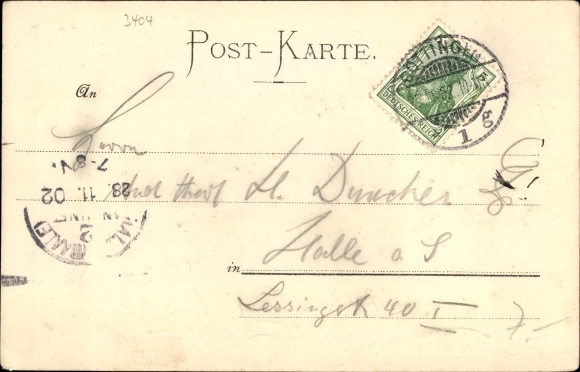 3404
POST-KARTE.
GÖTTINGEN
1 g
DEUTSCHES REICH
An
Herrn
7-8 N.
28. 11. 02
(SAALE)
stud theol H. Duncker
Halle a S
in
Lessingstr 40 I